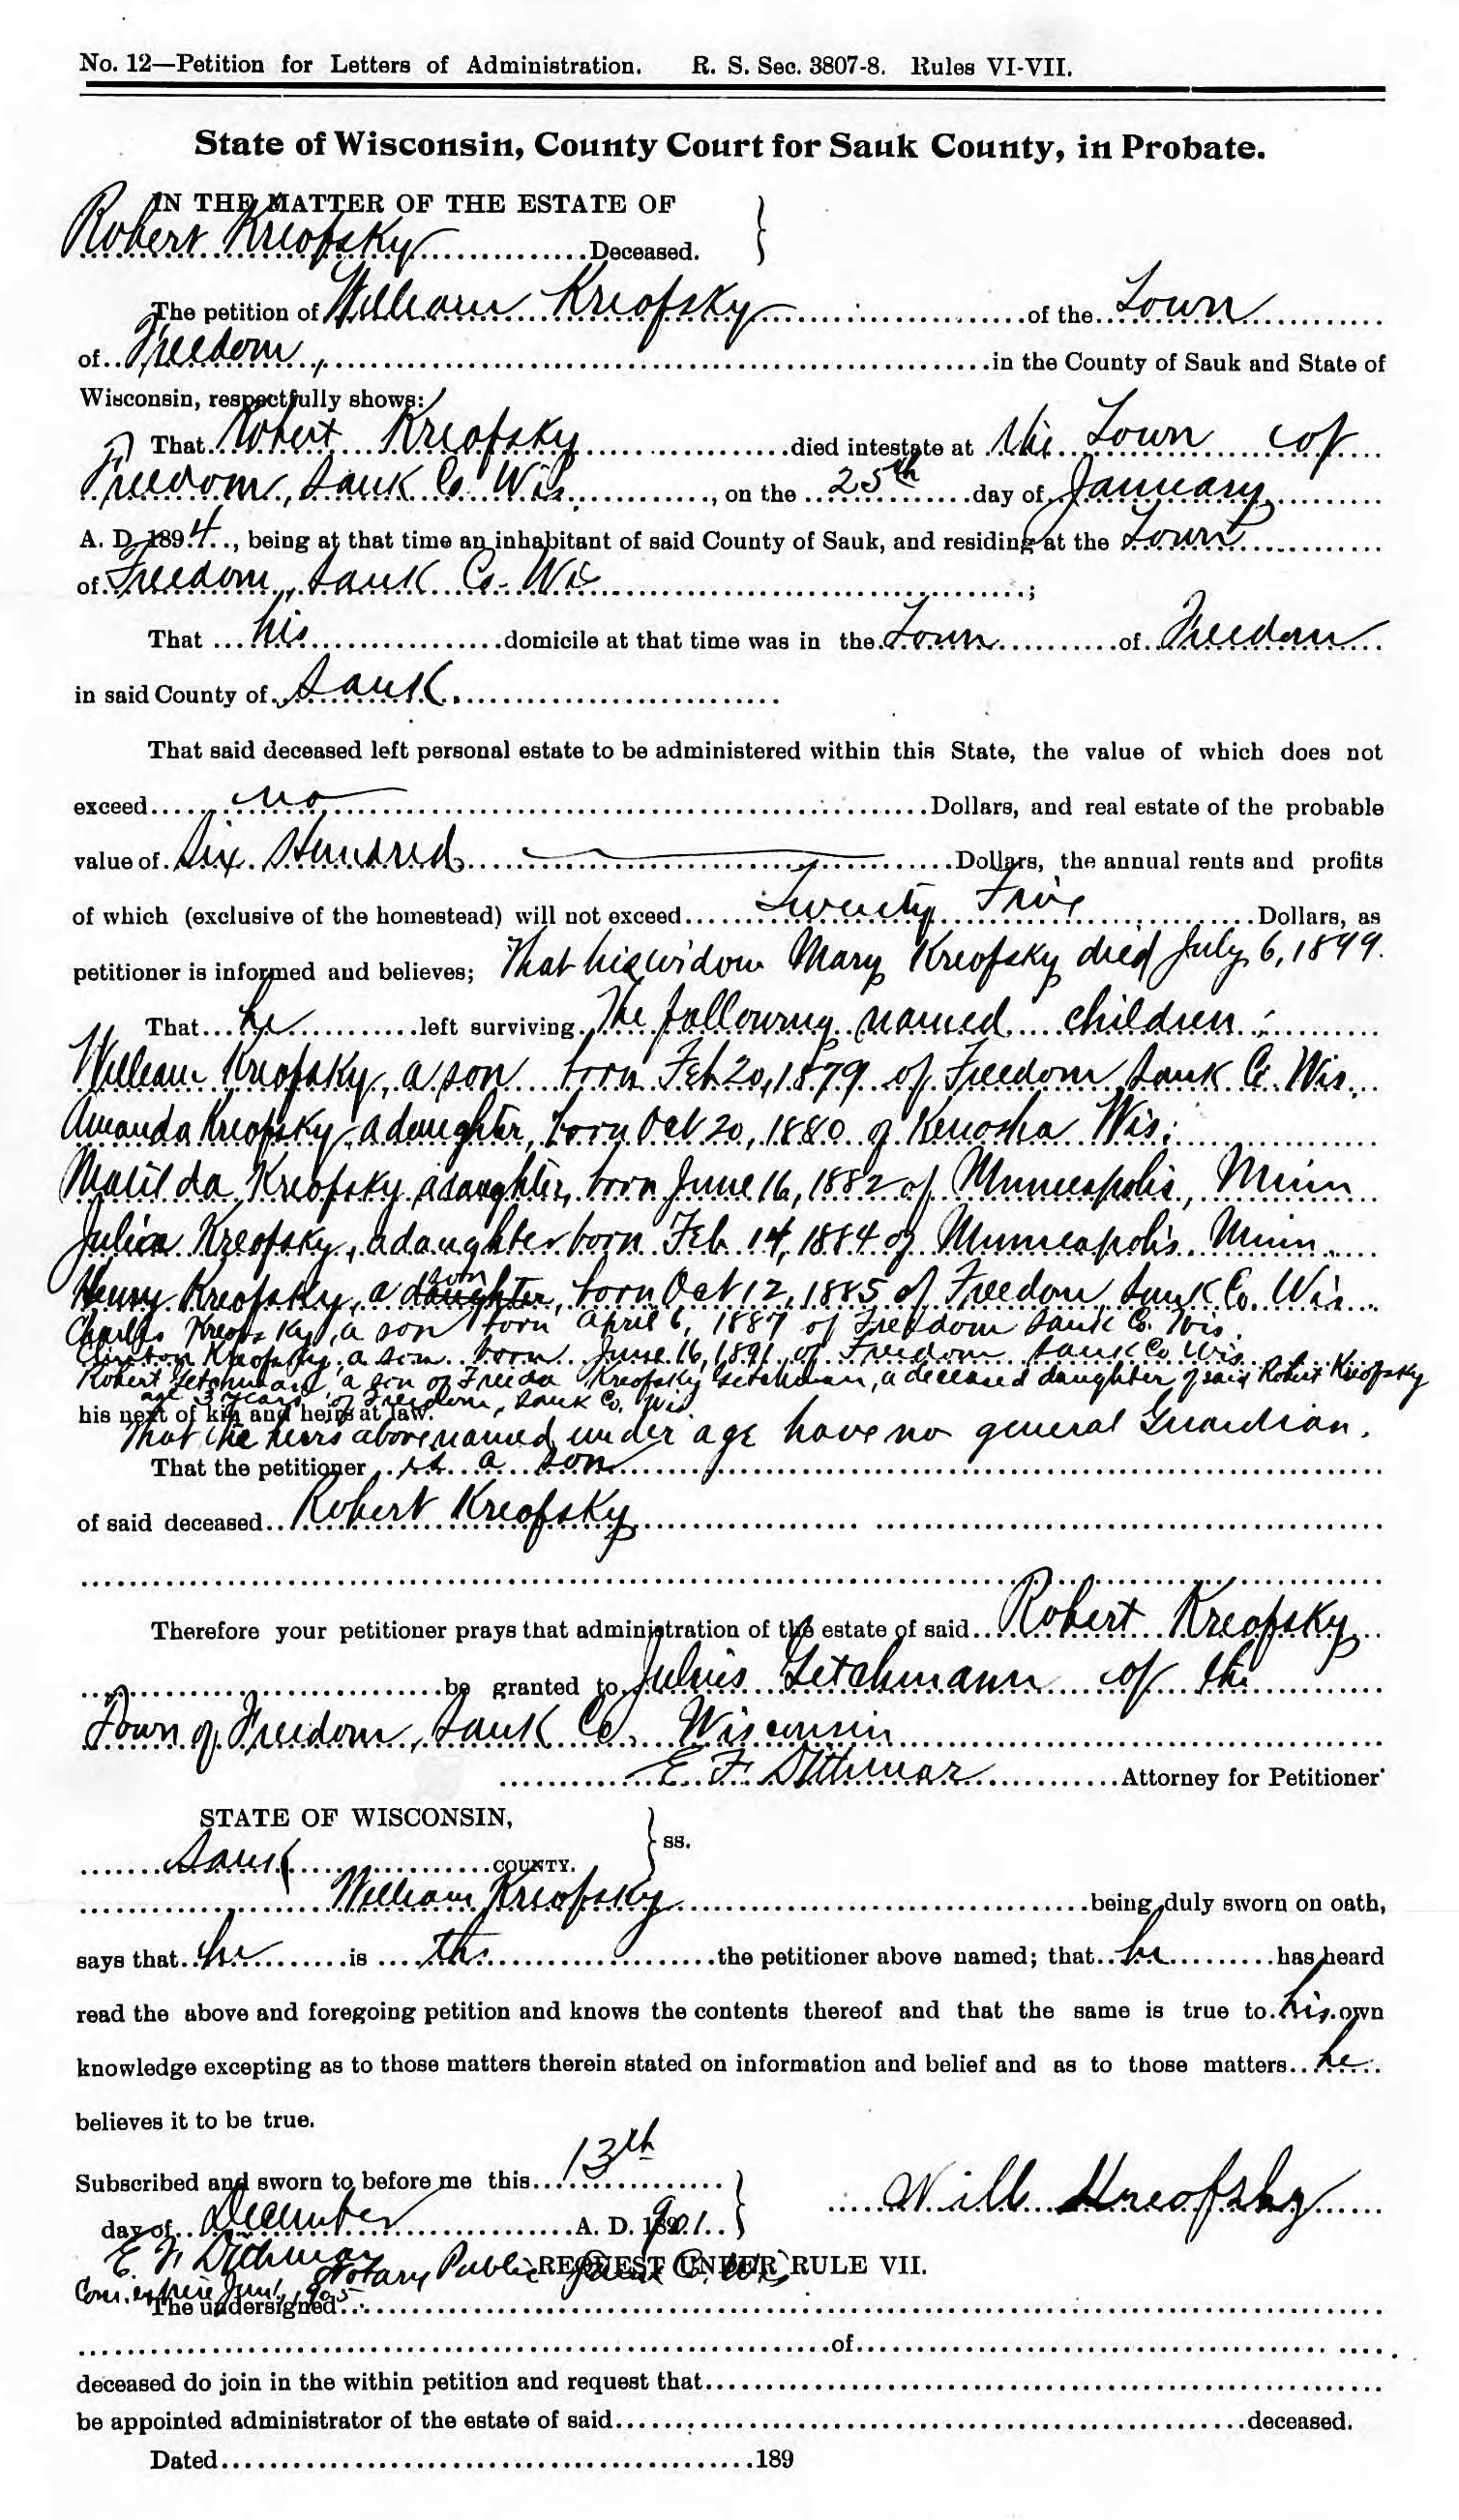 No. 12—Petition for Letters of Administration. R. S. Sec. 3807-8. Rules VI-VII.
State of Wisconsin, County Court for Sauk County, in Probate.
IN THE MATTER OF THE ESTATE OF
Robert Kreofsky Deceased.
The petition of William Kreofsky of the Town
of Freedom, in the County of Sauk and State of
Wisconsin, respectfully shows:
That Robert Kreofsky died intestate at the Town of
Freedom, Sauk Co. Wis., on the 25th day of January
A. D. 1894, being at that time an inhabitant of said County of Sauk, and residing at the Town
of Freedom, Sauk Co. Wis;
That his domicile at that time was in the Town of Freedom
in said County of Sauk.
That said deceased left personal estate to be administered within this State, the value of which does not
exceed no Dollars, and real estate of the probable
value of Six Hundred Dollars, the annual rents and profits
of which (exclusive of the homestead) will not exceed Twenty Five Dollars, as
petitioner is informed and believes; That his widow Mary Kreofsky died July 6, 1899.
That he left surviving The following named children:
William Kreofsky, a son born Feb 20, 1879 of Freedom, Sauk Co. Wis.
Amanda Kreofsky, a daughter, born Oct 20, 1880 of Kenosha Wis.
Matilda Kreofsky a daughter, born June 16, 1882 of Minneapolis, Minn
Julia Kreofsky, a daughter born Feb. 14, 1884 of Minneapolis Minn.
Henry Kreofsky, a daughter son, born Oct 12, 1885 of Freedom Sauk Co. Wis.
Charles Kreofsky, a son born April 6, 1887 of Freedom Sauk Co. Wis.
Kreofsky, a son born June 16, 1891 of Freedom Sauk Co Wis
Robert Getchmann, a son of Freda Kreofsky Getchman, a deceased daughter of said Robert Kreofsky
age 3 years of Freedom, Sauk Co. Wis
his next of kin and heirs at law.
That the heirs above named under age have no general Guardian.
That the petitioner is a son
of said deceased Robert Kreofsky
Therefore your petitioner prays that administration of the estate of said Robert Kreofsky
be granted to Julius Getchmann of the
Town of Freedom, Sauk Co. Wisconsin
E. F. Dithmar Attorney for Petitioner
STATE OF WISCONSIN,
Sauk COUNTY. ss.
William Kreofsky being duly sworn on oath,
says that he is the the petitioner above named; that he has heard
read the above and foregoing petition and knows the contents thereof and that the same is true to his own
knowledge excepting as to those matters therein stated on information and belief and as to those matters he
believes it to be true.
Subscribed and sworn to before me this 13th
Will Kreofsky
day of December A. D. 1901
E. F. Dithmar
Notary Public Sauk Co. Wis
REQUEST UNDER RULE VII.
Com. expire Jun 1, 1905
The undersigned
of
deceased do join in the within petition and request that
be appointed administrator of the estate of said deceased.
Dated 189